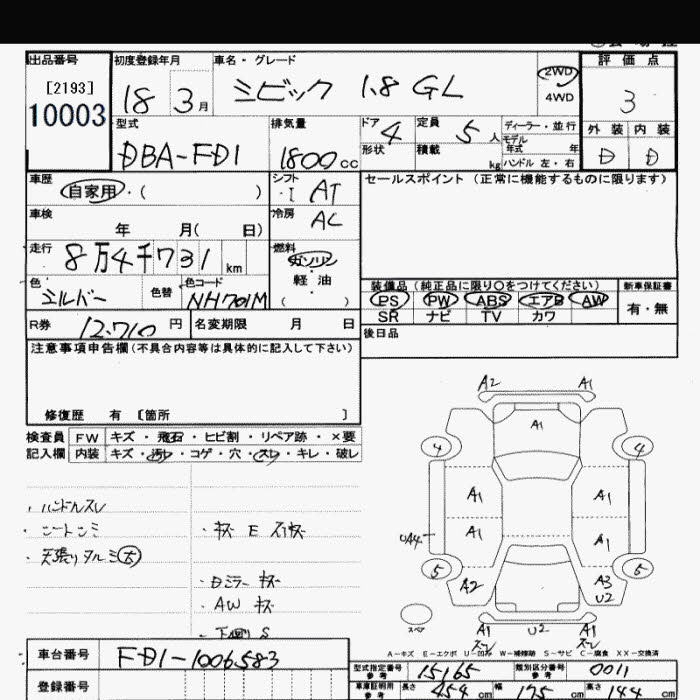 出品番号 初度登録年月 車名・グレード 評価点
[2193]
10003 18 3月 シビック 1.8 GL 2WD 4WD 3
外装 内装
D D
型式 排気量 ドア 4 定員 5人 ディーラー・並行
DBA-FD1 1800cc 形状 積載 kg モデル年式 年 ハンドル 左・右
車歴 自家用・( ) シフト ・I AT セールスポイント (正常に機能するものに限ります)
車検 年 月( 日) 冷房 AC
走行 8万4千731km 燃料 ガソリン 軽油 ( )
色 シルバー 色替 色コード NH701M
装備品(純正品に限り○をつけてください) 新車保証書
PS PW ABS エアB AW 有・無
SR ナビ TV カワ
R券 12,710円 名変期限 月 日 後日品
注意事項申告欄(不具合内容等は具体的に記入して下さい)
修復歴 有 [箇所 ]
検査員 FW キズ・飛石・ヒビ割・リペア跡・×要
記入欄 内装 キズ・汚れ・コゲ・穴・スレ・キレ・破レ
・ハンドルスレ
・シートシミ
・天張りタルミ大
・キズ E スリキズ
・Dミラー キズ
・AW キズ
・下廻り S
A2 A1
A1
4 4
A1 A1
UA4 A1 A1
5 5
A2 A3
U2
スペア
A1 U2 A1
スレ スレ
A-キズ E-エクボ U-凹み W-補修跡 S-サビ C-腐食 XX-交換済
車台番号 FD1-1006583
登録番号
型式指定番号 参考 15165 類別区分番号 参考 0011
車庫証明用 参考 長さ 454cm 幅 175cm 高さ 144cm